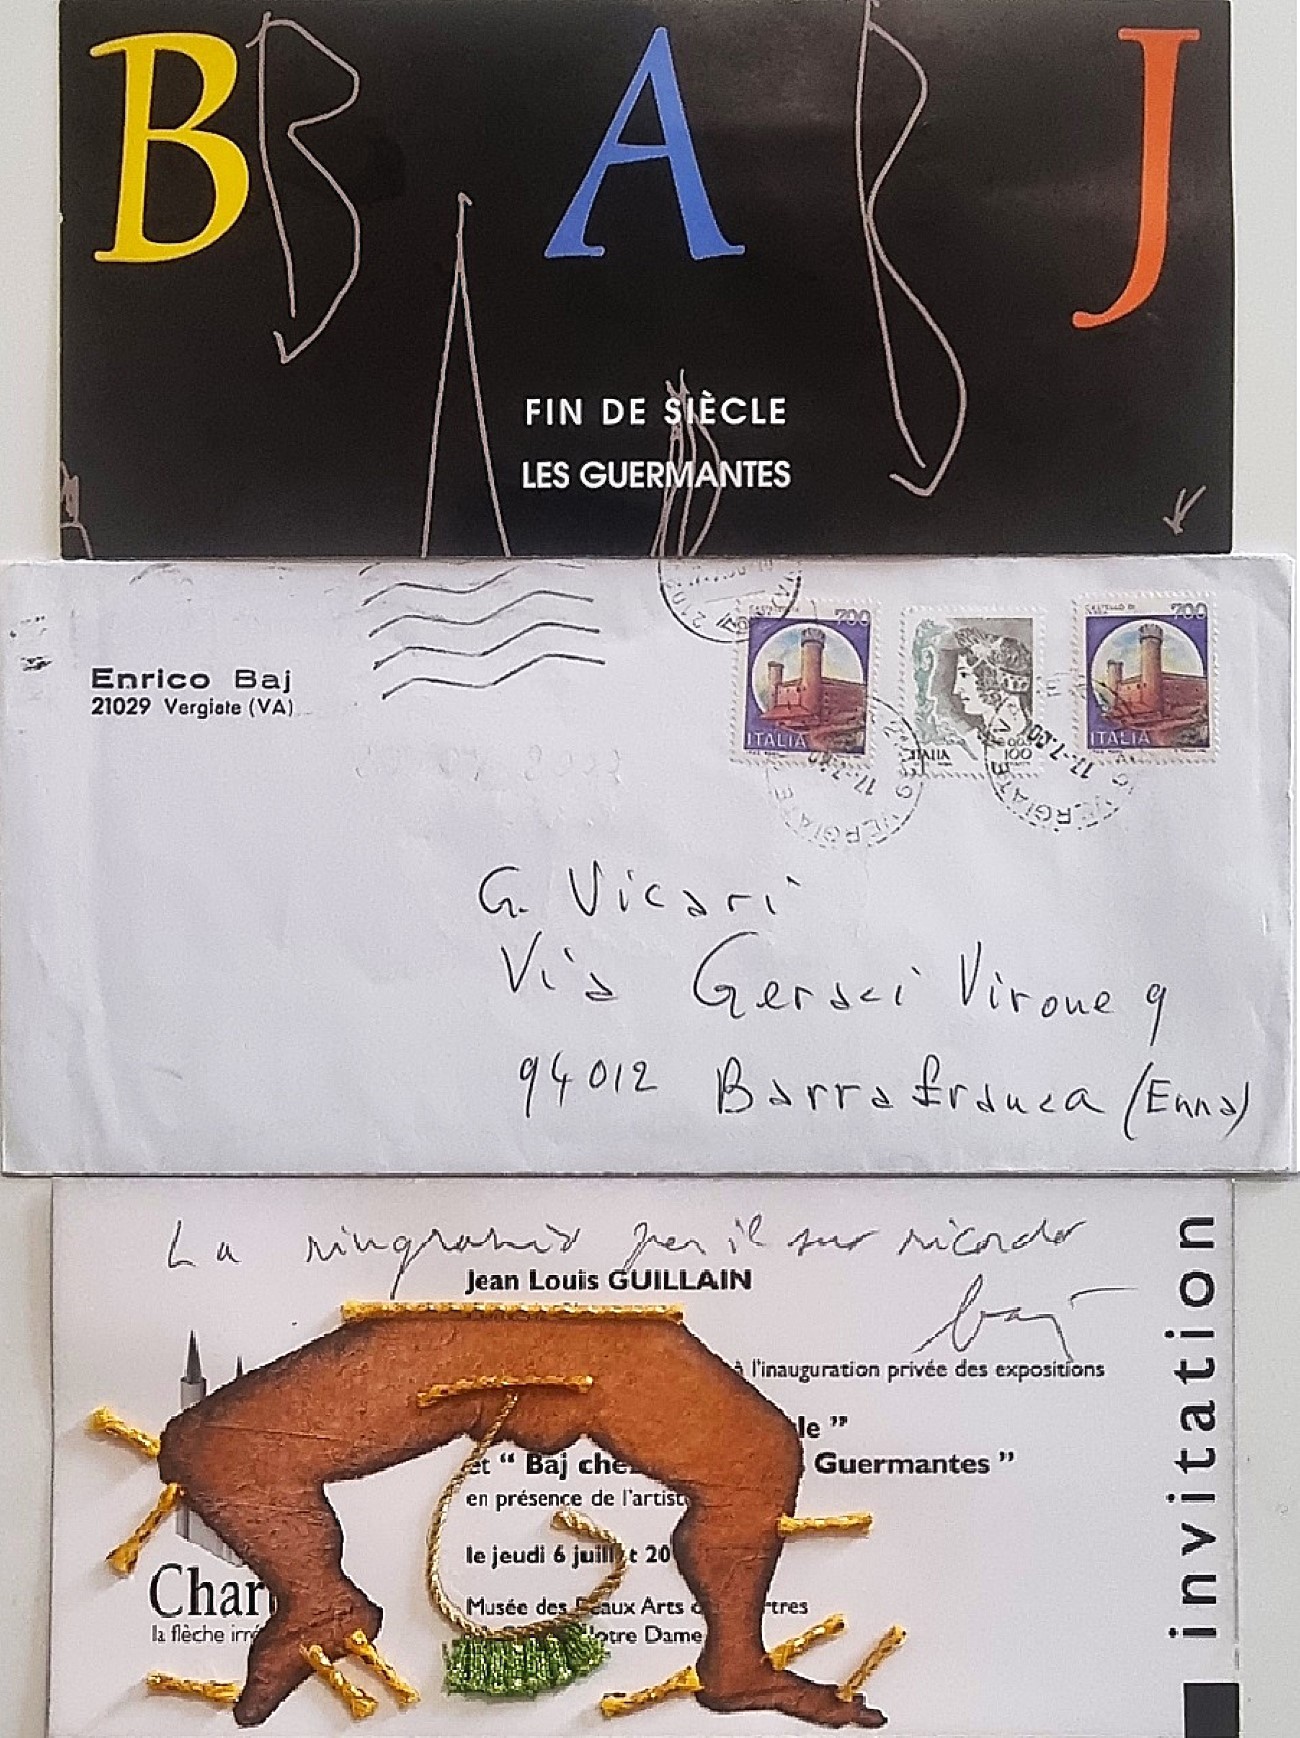 B A J
FIN DE SIÈCLE
LES GUERMANTES
Enrico Baj
21029 Vergiate (VA)
700
CASTELLO DI
700
ITALIA
ITALIA
100
ITALIA
17.7.00
VERGIATE
17.7.00
VERGIATE
G. Vicari
Via Geraci Virone 9
94012 Barrafranca (Enna)
La ringrazio per il suo ricordo
baj
Jean Louis GUILLAIN
à l'inauguration privée des expositions
le ”
et “ Baj che Guermantes ”
en présence de l'artiste
le jeudi 6 juillet 20
Musée des Beaux Arts tres
Notre Dame
Char
la flèche irré
invitation